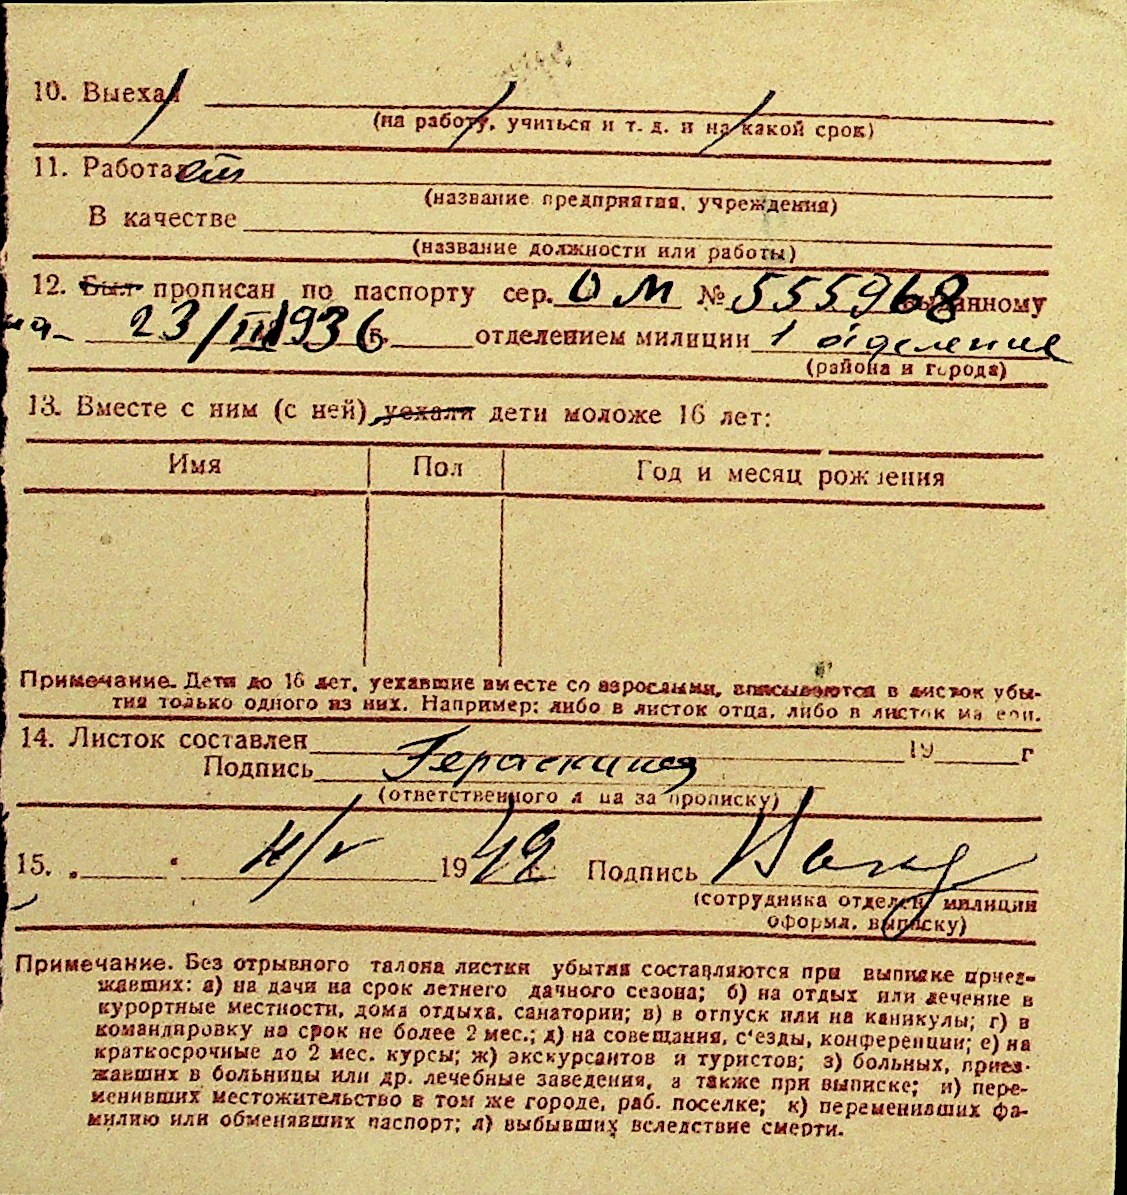 10. Выехал
(на работу, учиться и т. д. и на какой срок)
11. Работает
(название предприятия, учреждения)
В качестве
(название должности или работы)
12. Был прописан по паспорту сер. ОМ № 555968 выданному
на 23/III 1936 г. отделением милиции 1 отделение
(района и города)
13. Вместе с ним (с ней) уехали дети моложе 16 лет:
Имя Пол Год и месяц рождения
Примечание. Дети до 16 лет, уехавшие вместе со взрослыми, вписываются в листок убы-
тия только одного из них. Например: либо в листок отца, либо в листок матери.
14. Листок составлен 19 г
Подпись Гераскина
(ответственного лица за прописку)
15. „ “ 4/V 1942 г. Подпись
(сотрудника отделен. милиции
оформл. выписку)
Примечание. Без отрывного талона листки убытия составляются при выписке приез-
жавших: а) на дачи на срок летнего дачного сезона; б) на отдых или лечение в
курортные местности, дома отдыха, санатории; в) в отпуск или на каникулы; г) в
командировку на срок не более 2 мес.; д) на совещания, с'езды, конференции; е) на
краткосрочные до 2 мес. курсы; ж) экскурсантов и туристов; з) больных, приез-
жавших в больницы или др. лечебные заведения, а также при выписке; и) пере-
менивших местожительство в том же городе, раб. поселке; к) переменивших фа-
милию или обменявших паспорт; л) выбывших вследствие смерти.